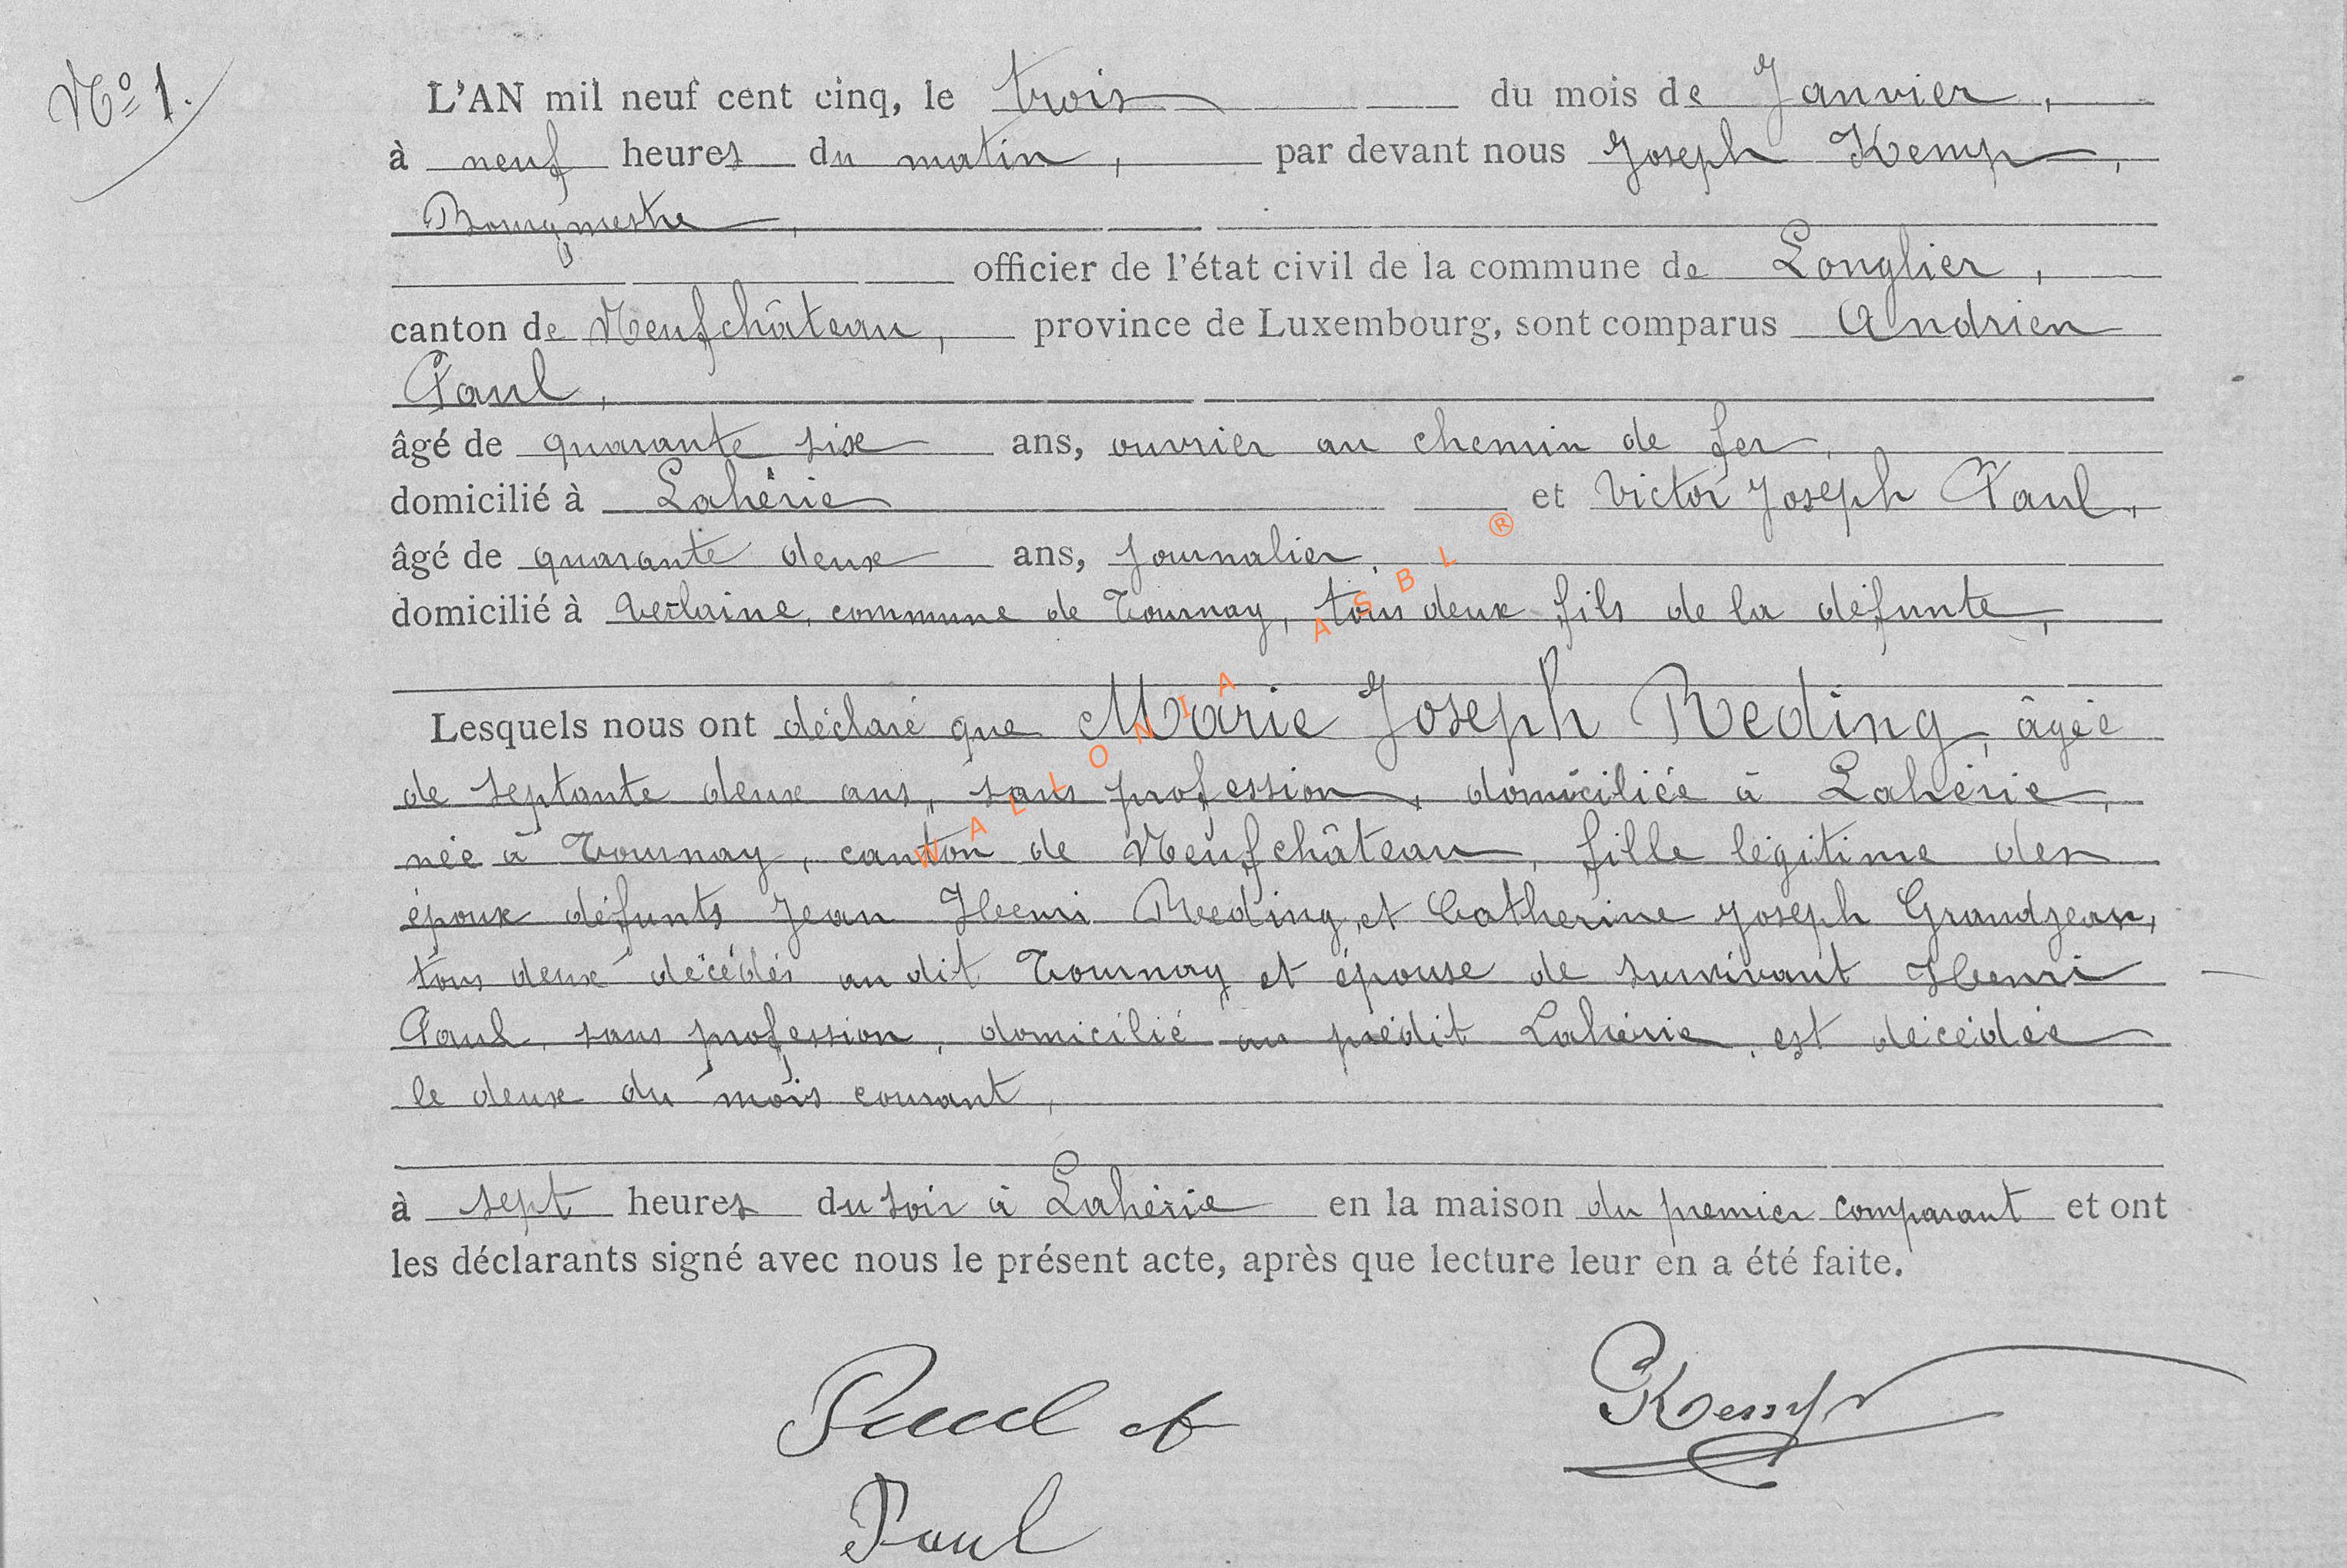 Nº 1.
L'AN mil neuf cent cinq, le trois du mois de Janvier,
à neuf heures du matin, par devant nous Joseph Kemp,
Bourgmestre,
officier de l'état civil de la commune de Longlier,
canton de Neufchâteau, province de Luxembourg, sont comparus Andrien
Paul,
âgé de quarante six ans, ouvrier au chemin de fer,
domicilié à Lahérie et Victor Joseph Paul,
âgé de quarante deux ans, journalier,
domicilié à Verlaine, commune de Tournay, tous deux fils de la défunte,
Lesquels nous ont déclaré que Marie Joseph Reding, âgée
de septante deux ans, sans profession, domiciliée à Lahérie,
née à Tournay, canton de Neufchâteau, fille légitime des
époux défunts Jean Henri Reding, et Catherine Joseph Grandjean,
tous deux décédés au dit Tournay et épouse de survivant Henri
Paul, sans profession, domicilié au prédit Lahérie, est décédée
le deux du mois courant,
à sept heures du soir à Lahérie en la maison du premier comparant et ont
les déclarants signé avec nous le présent acte, après que lecture leur en a été faite.
Paul A Kemp
Paul
WALLONIA ASBL ®